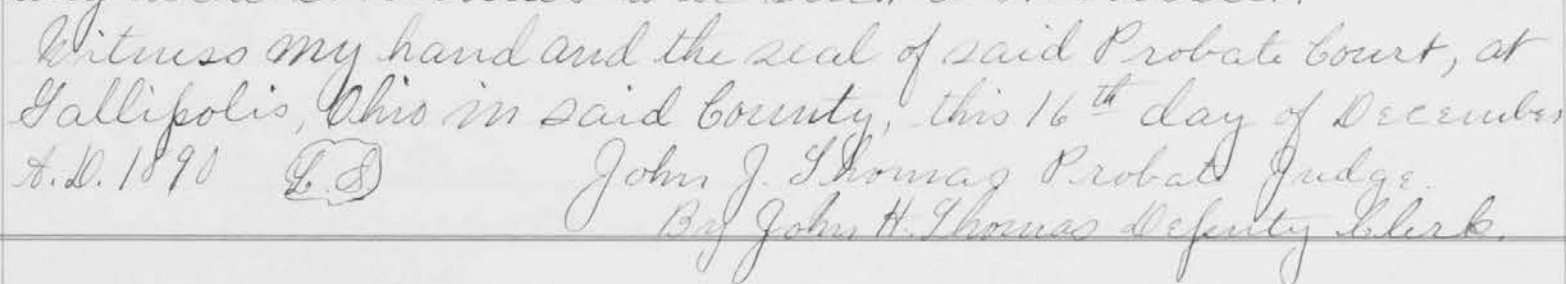 Witness my hand and the seal of said Probate Court, at
Gallipolis, Ohio in said County, this 16th day of December
A.D. 1890 L.S John J. Thomas Probate Judge.
By John H. Thomas Deputy Clerk.